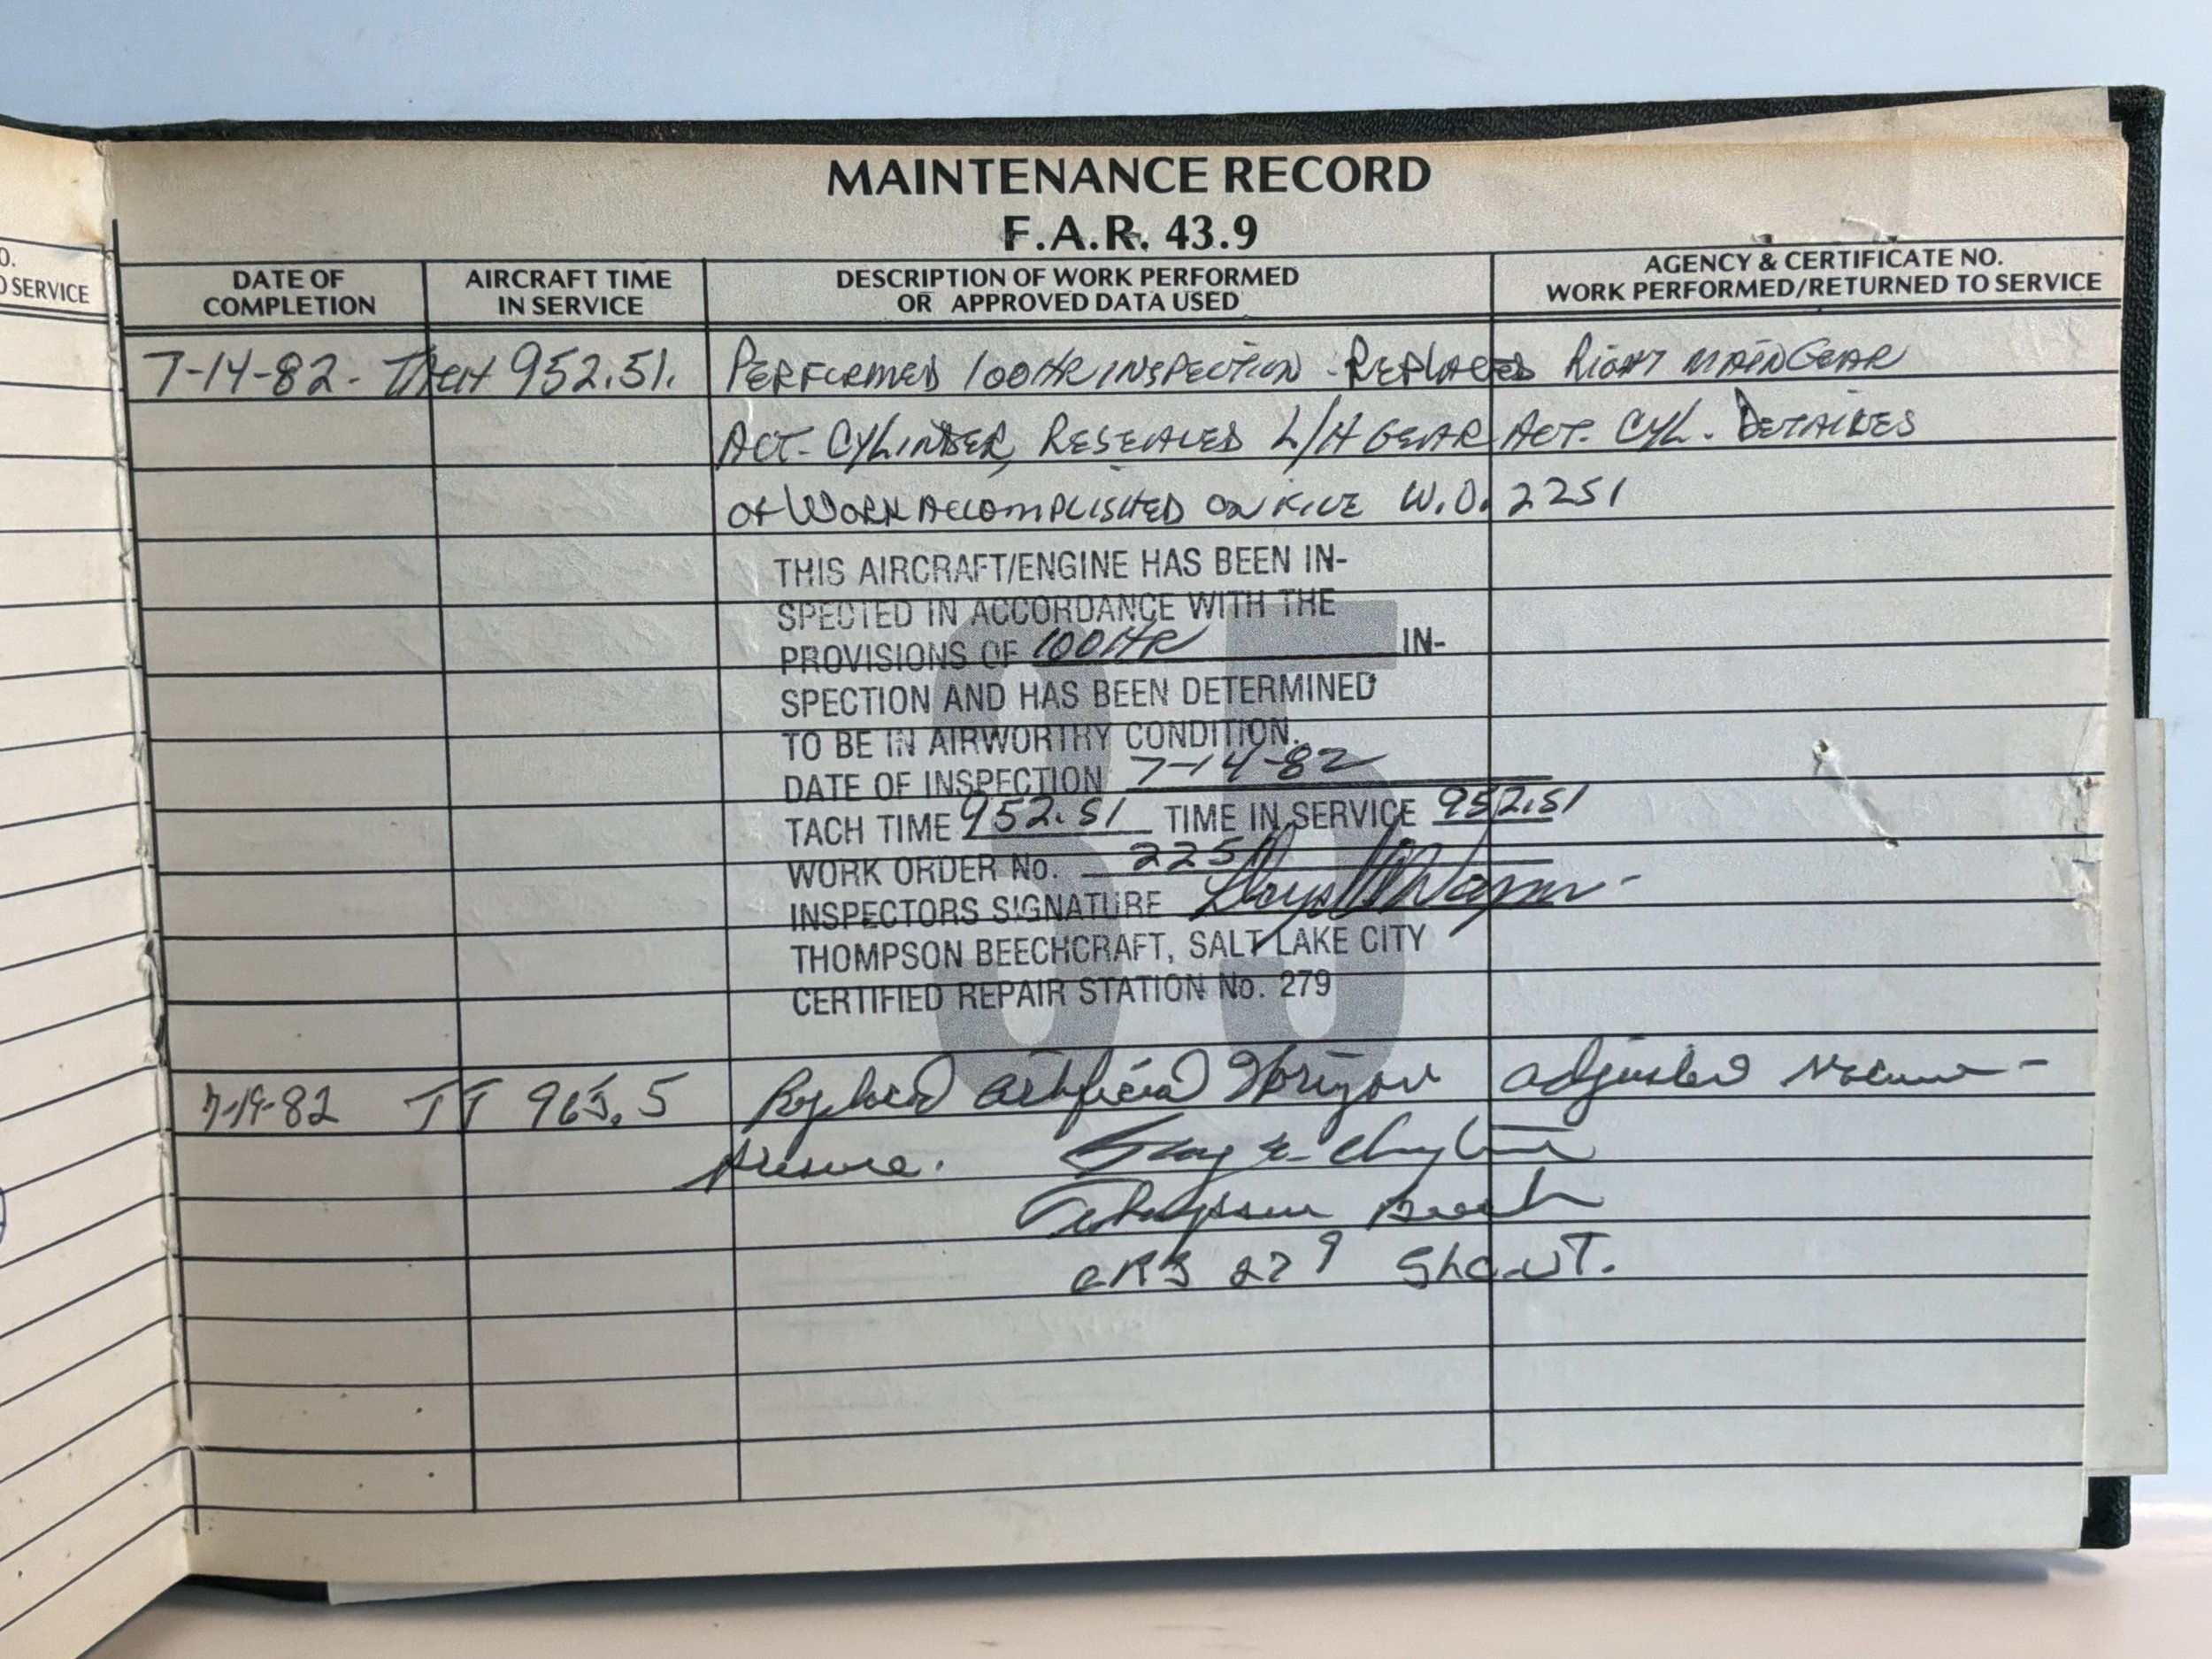 MAINTENANCE RECORD
F.A.R. 43.9
O.
O SERVICE
DATE OF
COMPLETION
AIRCRAFT TIME
IN SERVICE
DESCRIPTION OF WORK PERFORMED
OR APPROVED DATA USED
AGENCY & CERTIFICATE NO.
WORK PERFORMED/RETURNED TO SERVICE
7-14-82. 952.51. PERFORMED 100HR INSPECTION - REPLACED RIGHT MAIN GEAR
ACT. CYLINDER, RESEALED L/H GEAR ACT. CYL. DETAILES
OF WORK ACCOMPLISHED ON FILE W.O. 2251
85
THIS AIRCRAFT/ENGINE HAS BEEN IN-
SPECTED IN ACCORDANCE WITH THE
PROVISIONS OF 100HR IN-
SPECTION AND HAS BEEN DETERMINED
TO BE IN AIRWORTHY CONDITION.
DATE OF INSPECTION 7-14-82
TACH TIME 952.51 TIME IN SERVICE 952.51
WORK ORDER No. 2251
INSPECTORS SIGNATURE
THOMPSON BEECHCRAFT, SALT LAKE CITY
CERTIFIED REPAIR STATION No. 279
7-19-82 TT 963.5 Replaced artificial Horizon adjusted
Thompson Beech
CRS 279 SLC. UT.